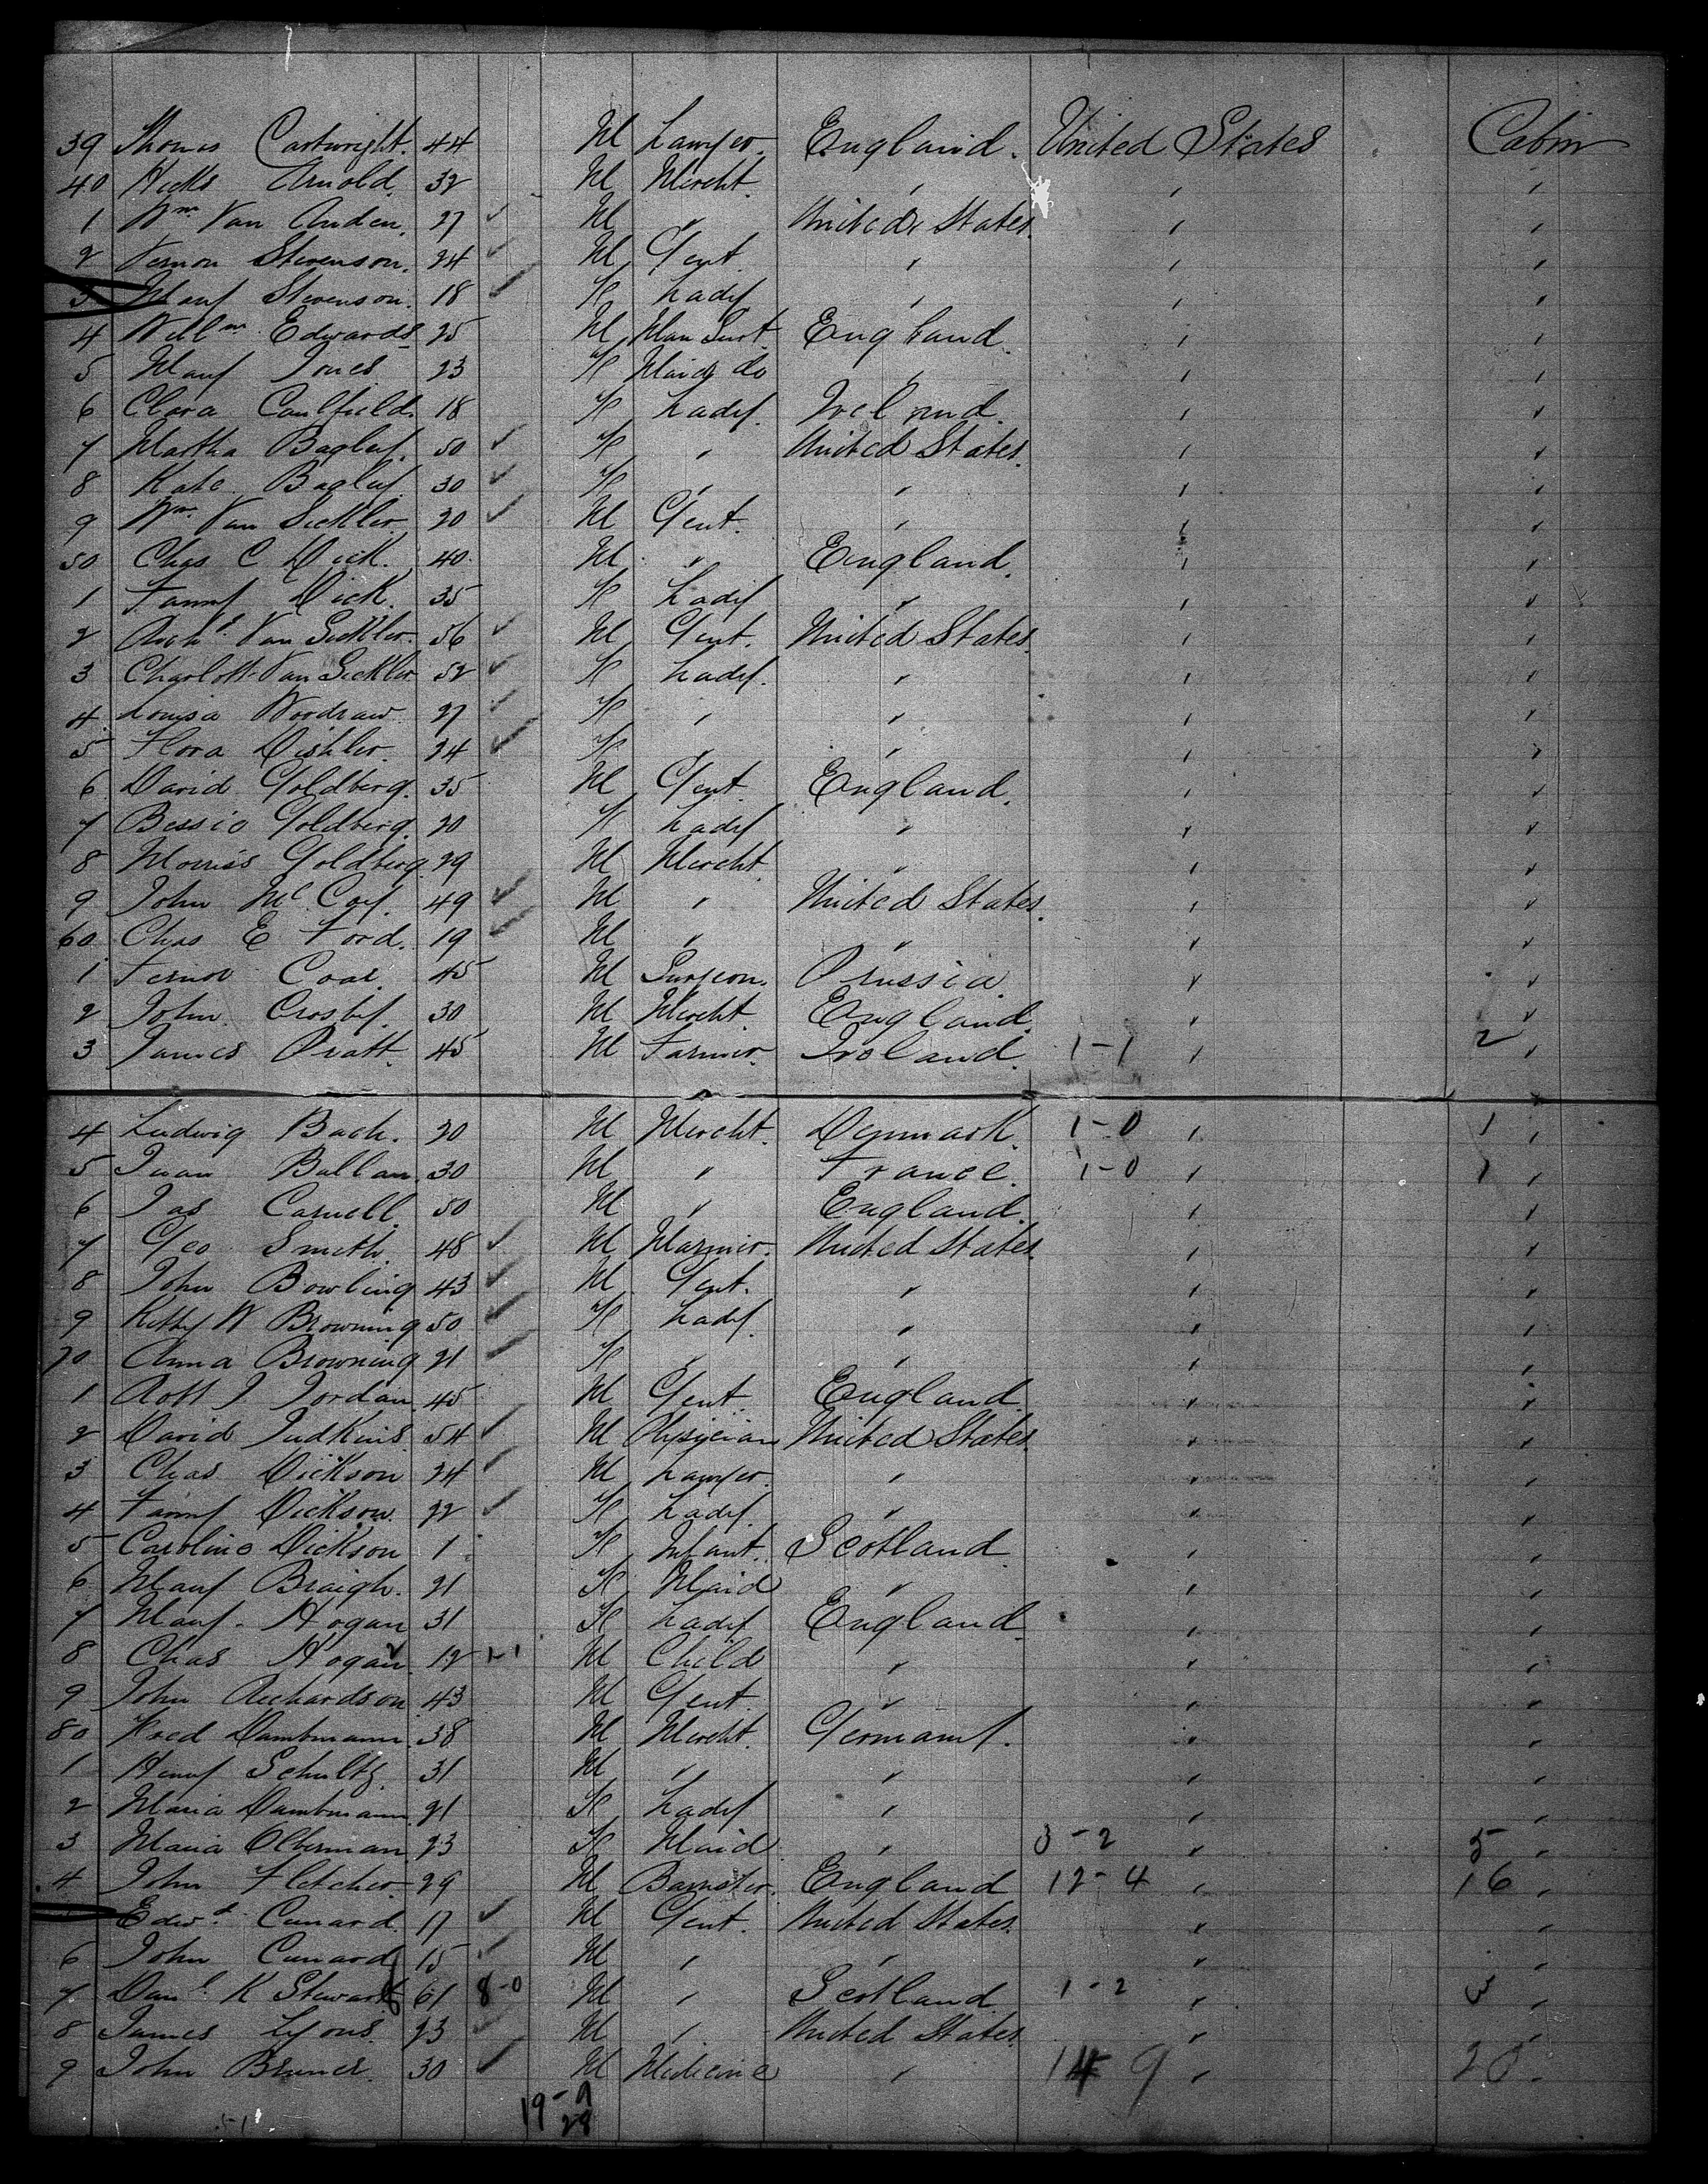 39 Thomas Cartwright. 44 M Lawyer. England. United States Cabin
40 Hicks Arnold. 32 M Mercht. " " "
1 Wm Van Anden. 27 ✓ M " United States. " "
2 Vernon Stevenson. 24 ✓ M Gent. " " "
3 Mary Stevenson. 18 ✓ F Lady " " "
4 Willm Edwards 25 M Man Servt. England. " "
5 Mary Jones 23 F Maid do " " "
6 Clara Caulfield. 18 F Lady. Ireland. " "
7 Martha Bagley. 50 ✓ F " United States. " "
8 Kate Bagley 30 ✓ F " " " "
9 Wm Van Sickler 20 ✓ M Gent. " " "
50 Chas C Dick. 40. M " England. " "
1 Fanny Dick. 35 F Lady " " "
2 Van Sickler. 56 ✓ M Gent. United States. " "
3 Charlott Van Sickler 52 ✓ F Lady. " " "
4 Louisa Woodraw 27 ✓ F " " " "
5 Flora Dishler. 24 ✓ F " " " "
6 David Goldberg. 35 M Gent. England. " "
7 Bessie Goldberg. 20 F Lady " " "
8 Morriss Goldberg 29 M Mercht. " " "
9 John McCoy. 49 ✓ M " United States. " "
60 Chas E Ford. 19 ✓ M " " " "
1 Coar. 45 M Surgeon. Prussia " "
2 John Crosby. 30 M Mercht England. " "
3 James Pratt. 45 M Farmer. Ireland. 1-1 " 2 "
4 Ludwig Bach. 20 M Mercht. Denmark. 1-0 " 1 "
5 Juan Ballan 30 M " France. 1-0 " 1 "
6 Jas Carnell 50 M " England. " "
7 Geo Smith. 48 ✓ M Mariner. United States. " "
8 John Bowling 43 ✓ M Gent. " " "
9 Kitty W Browning 50 ✓ F Lady. " " "
70 Anna Browning 21 ✓ F " " " "
1 Robt J. Jordan 45 M Gent. England. " "
2 David Judkins 54 ✓ M Physician United States. " "
3 Chas Dickson 24 ✓ M Lawyer. " " "
4 Fanny Dickson. 22 ✓ F Lady. " " "
5 Caroline Dickson 1 F Infant. Scotland. " "
6 Mary Braigh. 21 F Maid " " "
7 Mary Hogan 31 F Lady England. " "
8 Chas Hogan 12 1-1 M Child " " "
9 John Richardson 43 M Gent. " " "
80 Fred Dambmann. 38 M Mercht. Germany. " "
1 Henry Schultz. 31 M " " " "
2 Maria Dambmann 21 F Lady " " "
3 Maria Olberman 23 F Maid " 3-2 " 5 "
4 John Fletcher 29 M Barrister. England 12-4 " 16 "
Edwd Cunard. 17 ✓ M Gent. United States. " "
6 John Cunard 15 ✓ M " " " "
7 Danl K Stewart 61 8-0 M " Scotland 1-2 " 3 "
8 James Lyons. 23 ✓ M " United States. " "
9 John Bruner. 30 ✓ M Medicine " 14 9 " 20 "
19-9
29
51